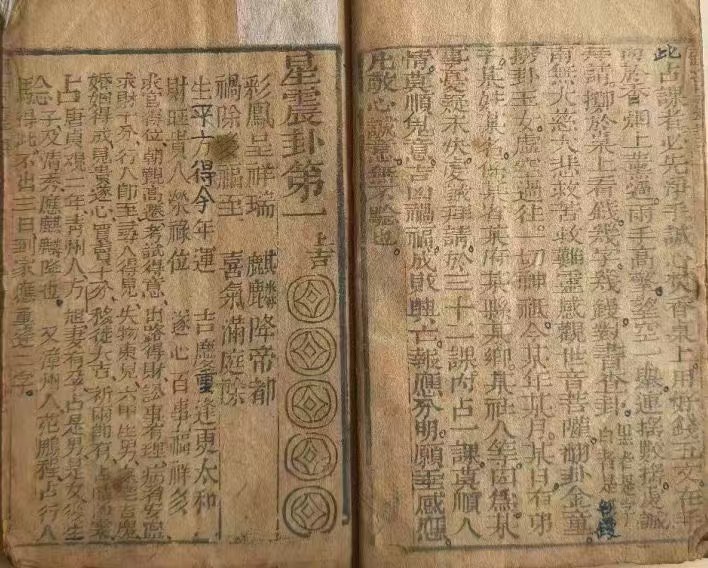 此占課者必先淨手誠心焚香桌上用好錢五文在手
向於香烟上薰過兩手高擎望空一舉連搖數搖虔誠
禱請擲於桌上看錢幾字幾錢對書查卦
南無大慈大悲救苦救難靈感觀世音菩薩翻卦金童
擲卦玉女虛空過往一切神祇今某年某月某日有弟
子某姓某名係某省某府某縣某鄉某社人等因為某
事憂疑未決虔誠拜請於三十二課內占一課莫順人
情莫順鬼意吉凶禍福成敗興亡報應分明願垂感應
此敬心誠意無不驗也
星震卦第一 上吉
彩鳳呈祥瑞 麒麟降帝都
禍除移福至 喜氣滿庭除
生平方得今年運 吉慶重逢東太和
財旺貴人榮祿位 遂心百事福祥多
求官得位朝觀高遷考試得意出路得財訟事有理病者安寧
求財十分行人即至尋人得見失物東見六甲生男
婚姻得成見貴遂心買賣十分移徙大吉
占唐貞觀二年青州人方旭妻有孕占是男是女後生
一子及清秀應麒麟降也 又漳州人范鵬程占行人
騐得此不出三日到家應重逢二字